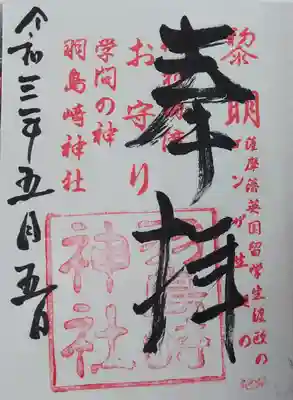 薩摩藩英国留学生渡欧の
黎明
奉拝
お守り
学問の神
羽島崎神社
令和三年五月五日
羽島崎
神社